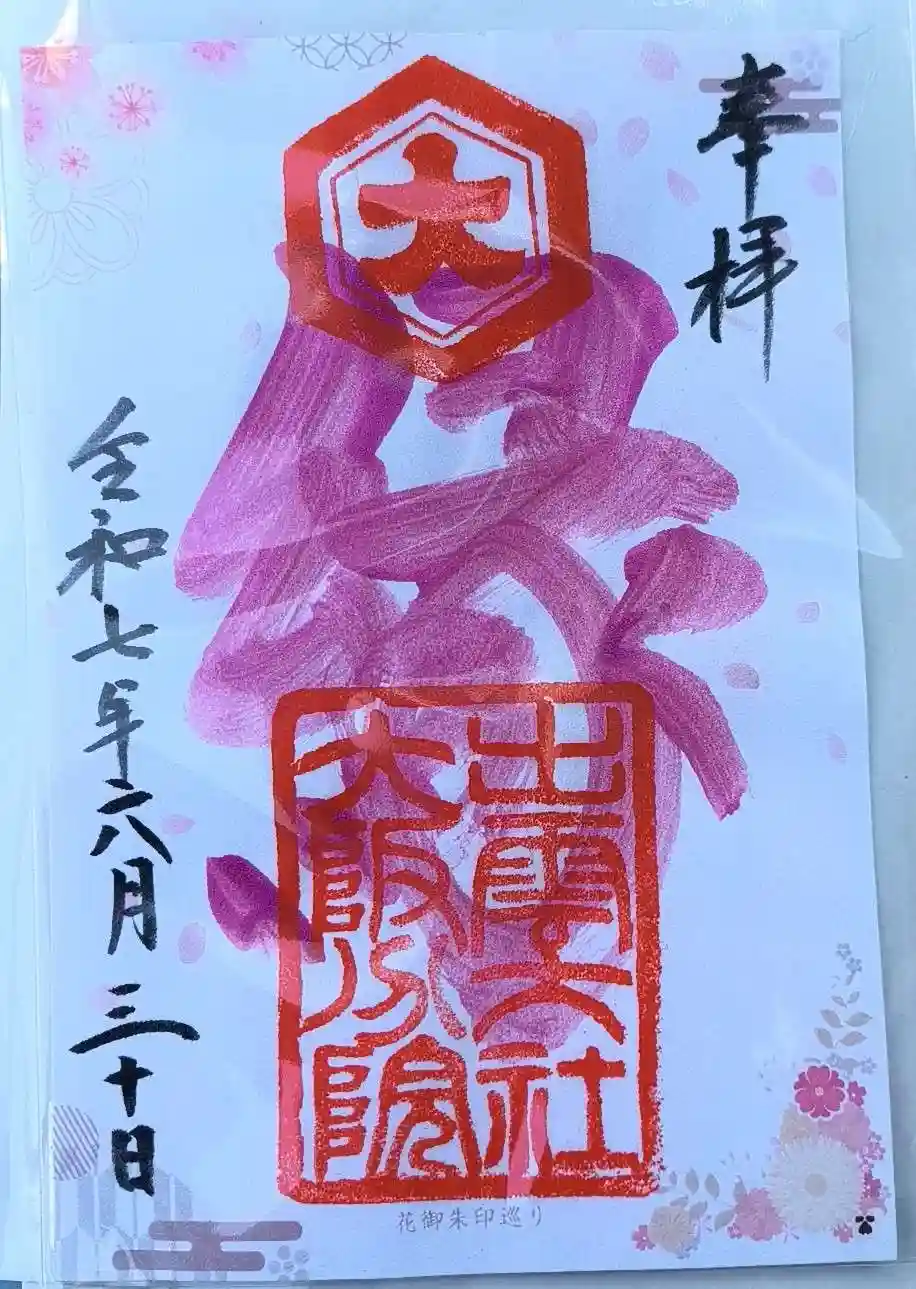 奉拝
大
出雲大社
大阪分院
令和七年六月三十日
花御朱印巡り